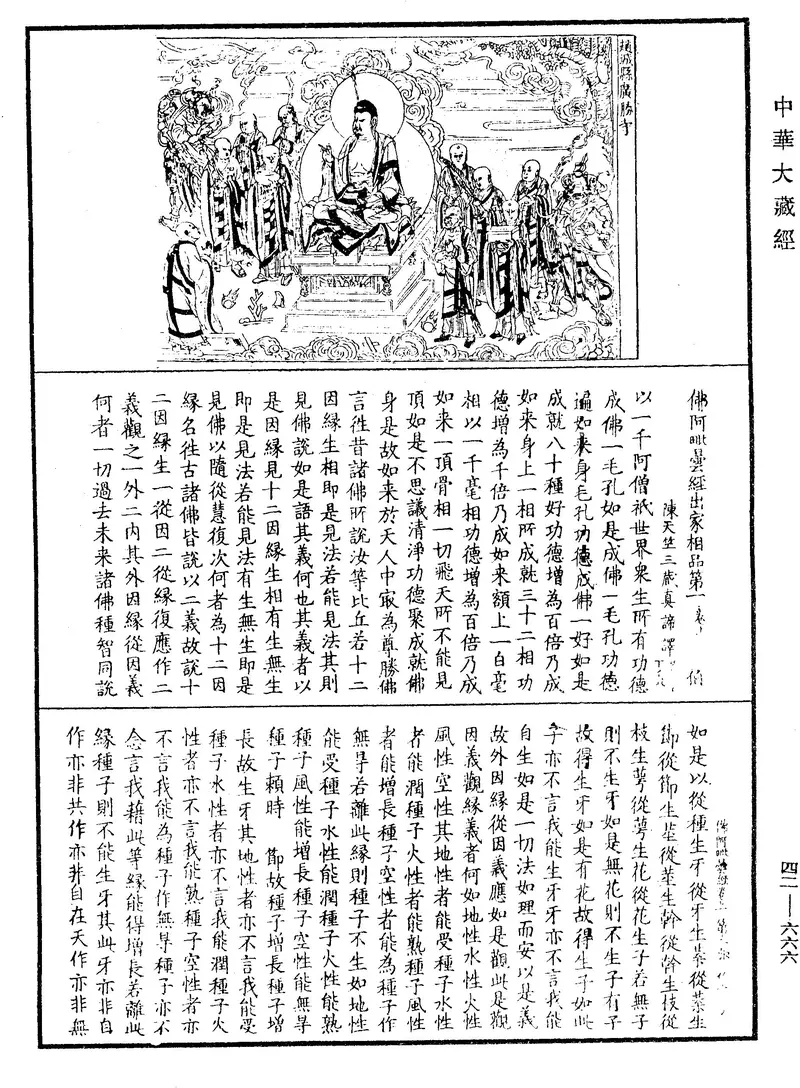 中華大藏經
趙城縣廣勝寺
佛阿毗曇經出家相品第一
陳天竺三藏真諦譯
以一千阿僧祇世界衆生所有功德
成佛一毛孔如是成佛一毛孔功德
遍如來身毛孔功德成佛一好如是
成就八十種好功德增為百倍乃成
如來身上一相所成就三十二相功
德增為千倍乃成如來額上一白毫
相以一千毫相功德增為百倍乃成
如來一頂骨相一切飛天所不能見
頂如是不思議清淨功德聚成就佛
身是故如來於天人中冣為尊勝佛
言徃昔諸佛所說汝等比丘若十二
因緣生相即是見法若能見法其則
見佛說如是語其義何也其義者以
是因緣見十二因緣生相有生無生
即是見法若能見法有生無生即是
見佛以隨從慧復次何者為十二因
緣名徃古諸佛皆說以二義故說十
二因緣生一從因二從緣復應作二
義觀之一外二內其外因緣從因義
何者一切過去未來諸佛種智同說
如是以從種生牙從牙生葉從葉生
節從節生莖從莖生幹從幹生枝從
枝生萼從萼生花從花生子若無子
則不生牙如是無花則不生子有子
故得生牙如是有花故得生子如此
子亦不言我能生牙牙亦不言我能
自生如是一切法如理而安以是義
故外因緣從因義應如是觀此是觀
因義觀緣義者何如地性水性火性
風性空性其地性者能受種子水性
者能潤種子火性者能熟種子風性
者能增長種子空性者能為種子作
無㝵若離此緣則種子不生如地性
能受種子水性能潤種子火性能熟
種子風性能增長種子空性能無㝵
種子頼時節故種子增長種子增
長故生牙其地性者亦不言我能受
種子水性者亦不言我能潤種子火
性者亦不言我能熟種子空性者亦
不言我能為種子作無㝵種子亦不
念言我藉此等緣能得增長若離此
緣種子則不能生牙其此牙亦非自
作亦非共作亦非自在天作亦非無
四二—六六六